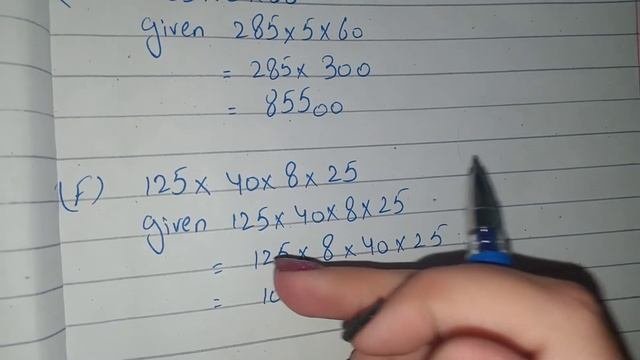 given 285×5×60
= 285× 300
= 85500
(f) 125× 40× 8 × 25
given 125×40×8×25
= 125× 8 ×40×25
= 10